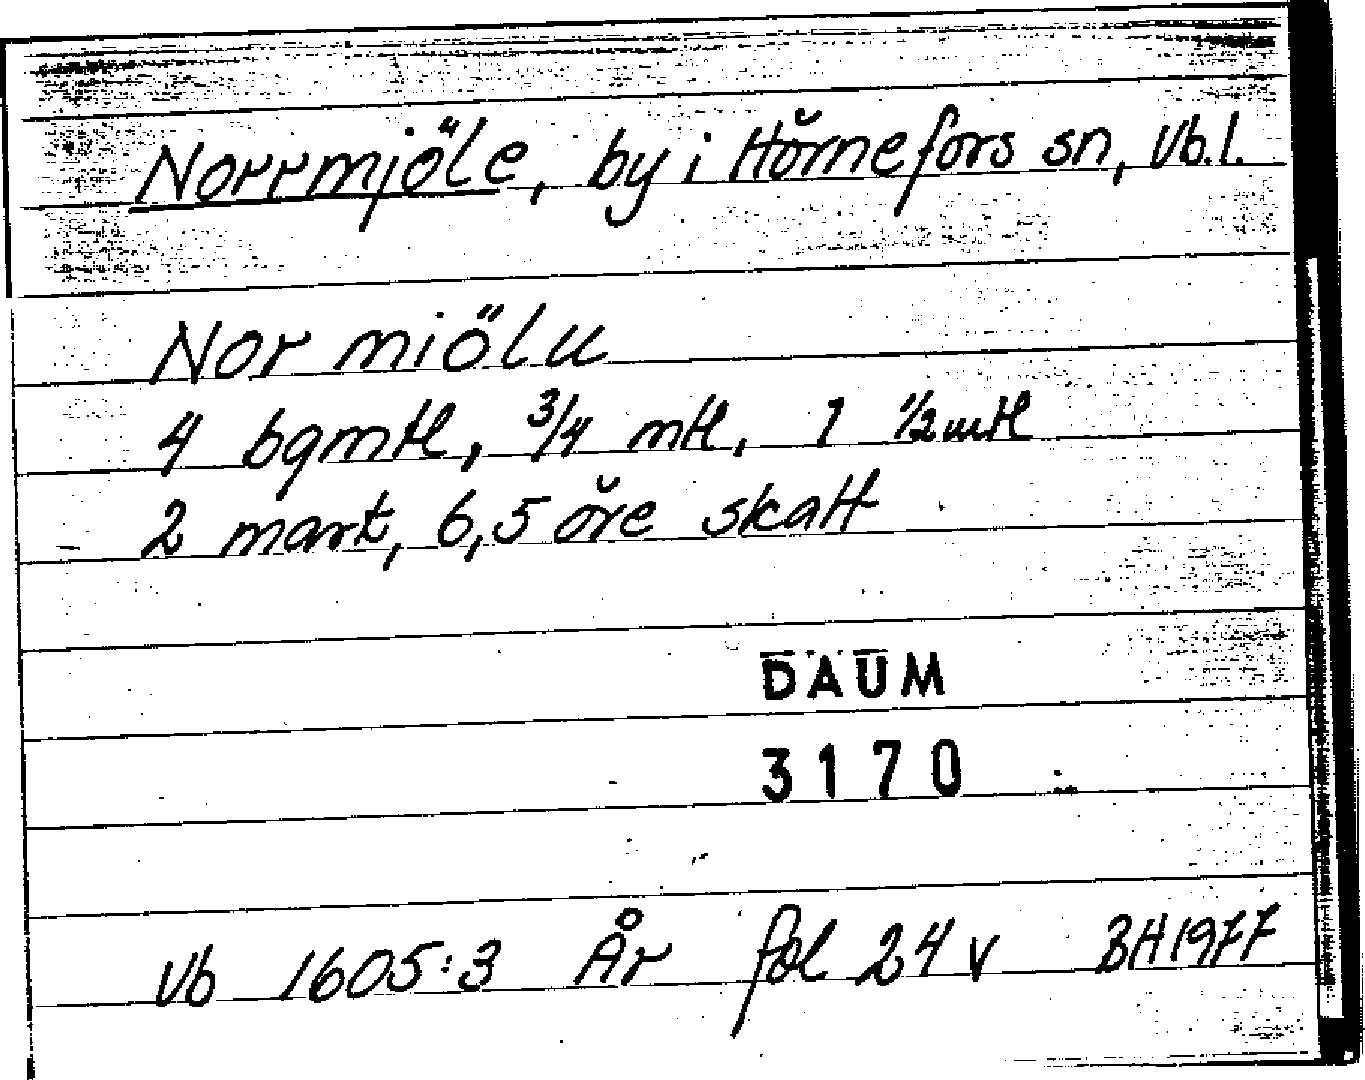 Norrmjöle, by i Hörnefors sn, Vb.l.
Nor miölu
4 bgmtl, 3/4 mtl, 1 1/2 mtl
2 mark, 6,5 öre skatt
DAUM
3170
Vb 1605:3 År fol 24 v BH 1977